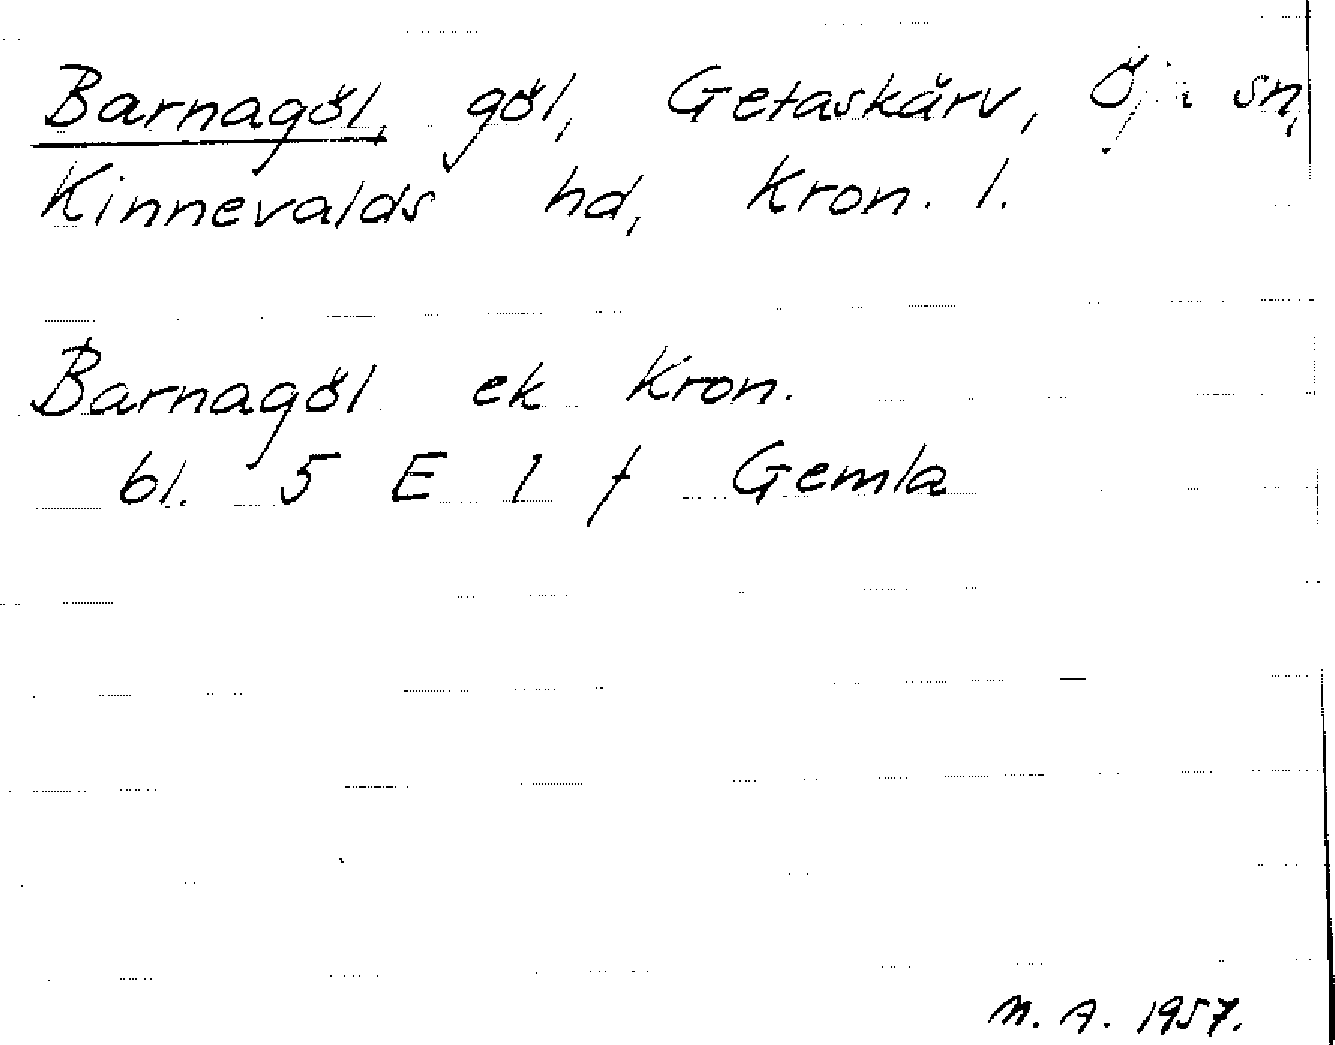 Barnagöl, göl, Getaskärv, Öja sn,
Kinnevalds hd, Kron. l.
Barnagöl ek Kron.
bl. 5 E 1 f Gemla
M. A. 1957.